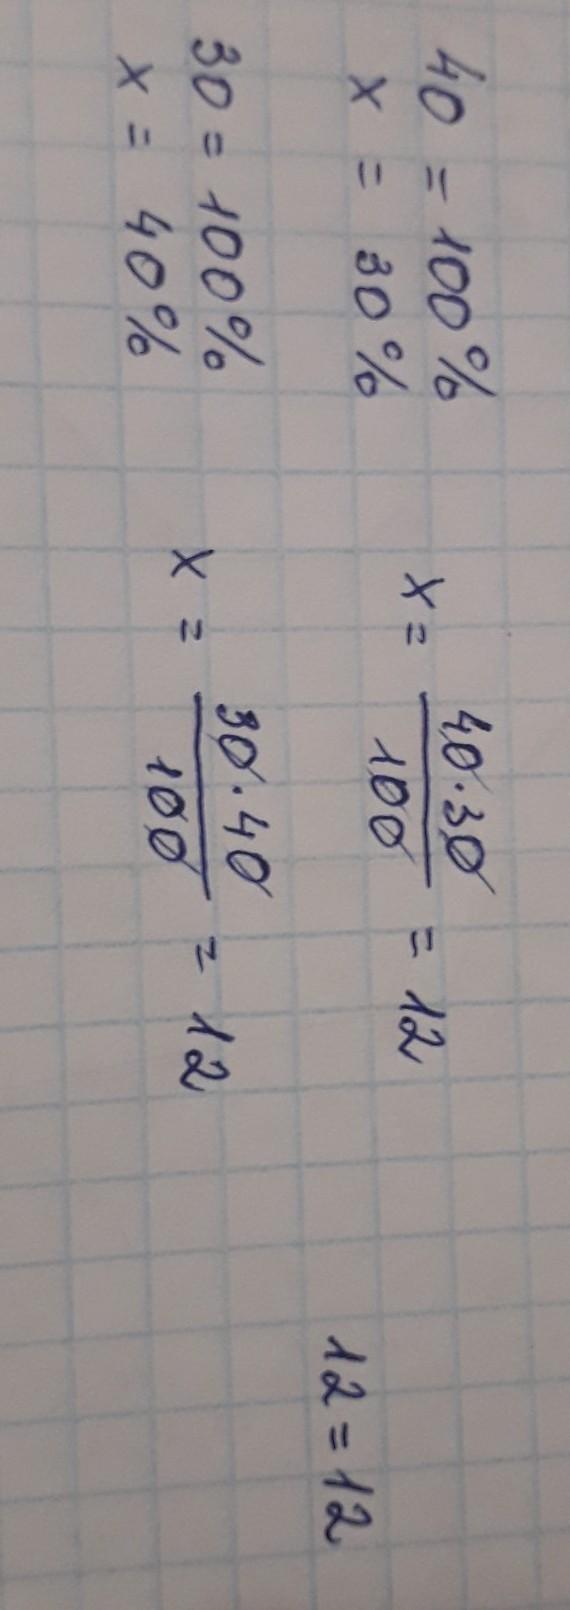 40 = 100%
x = 30%
x = 40·30/100 = 12
30 = 100%
x = 40%
x = 30·40/100 = 12
12 = 12